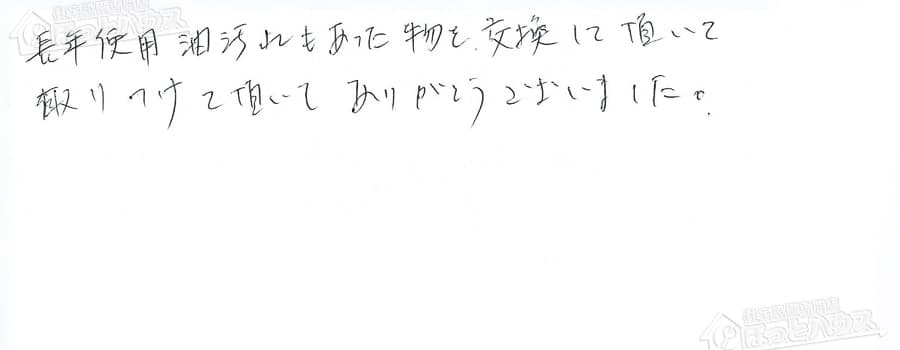 長年使用油汚れもあった物を、交換して頂いて
取りつけて頂いてありがとうございました。
ほっとハウス